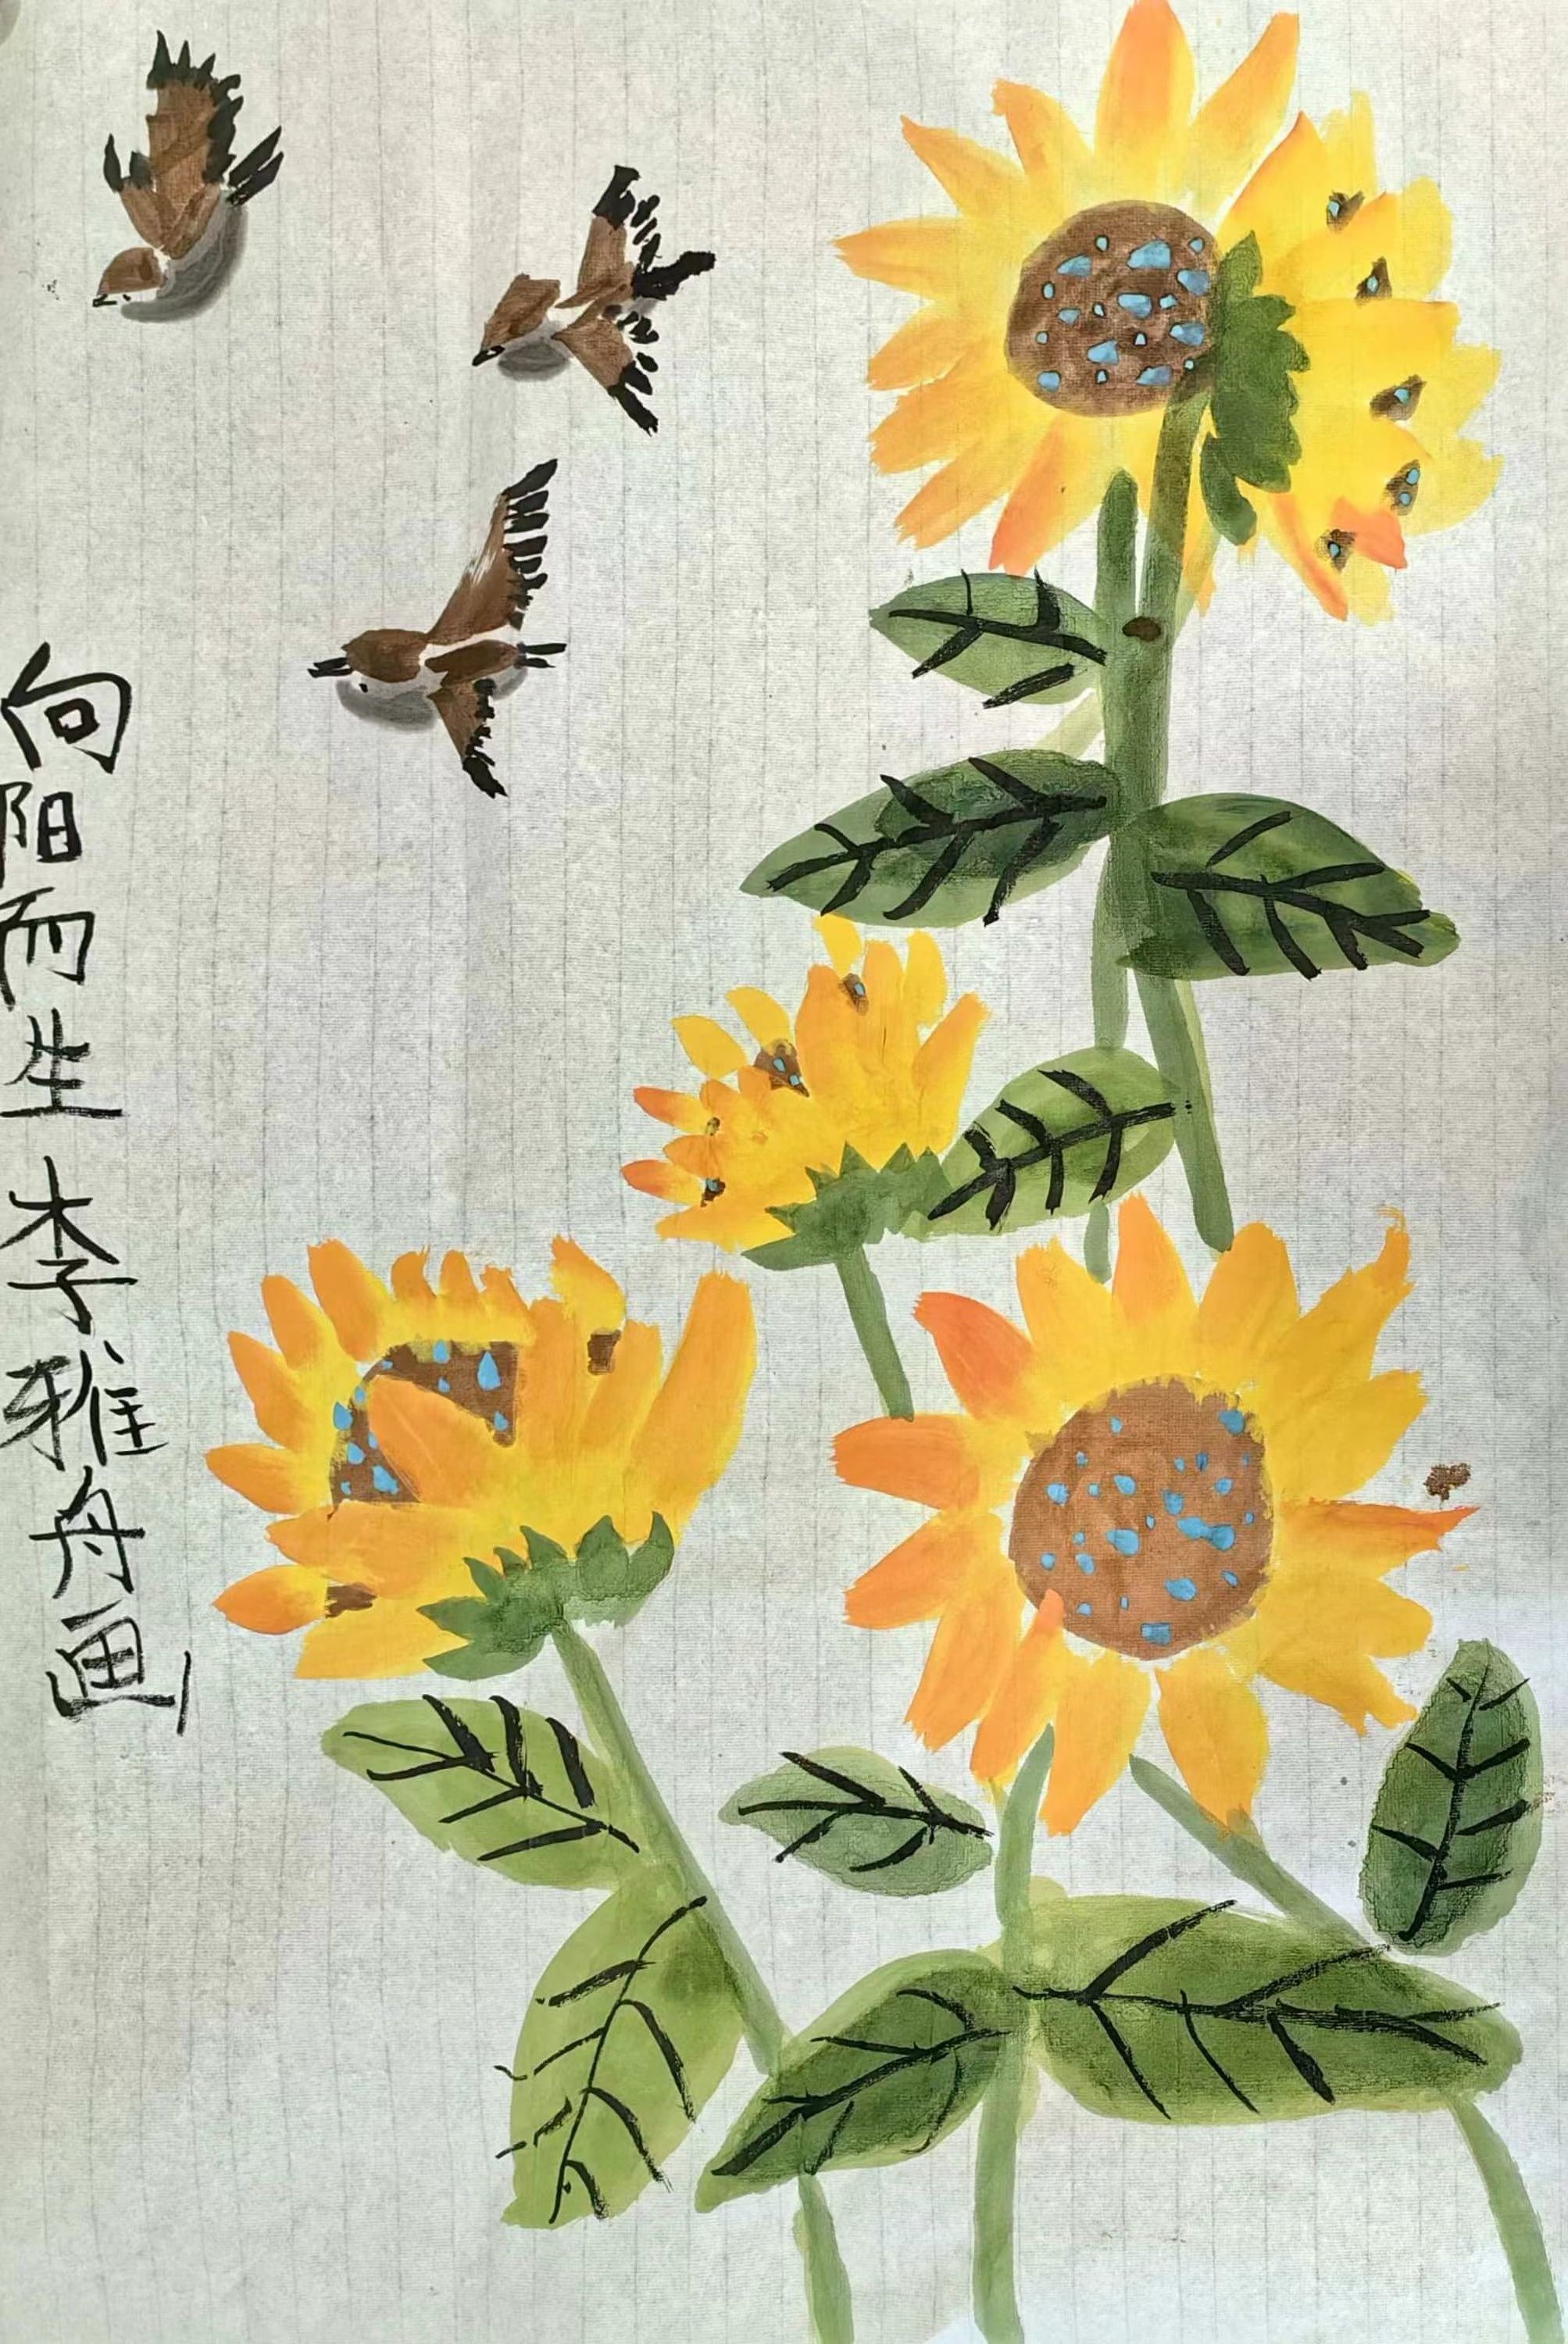 向阳而生李雅舟画